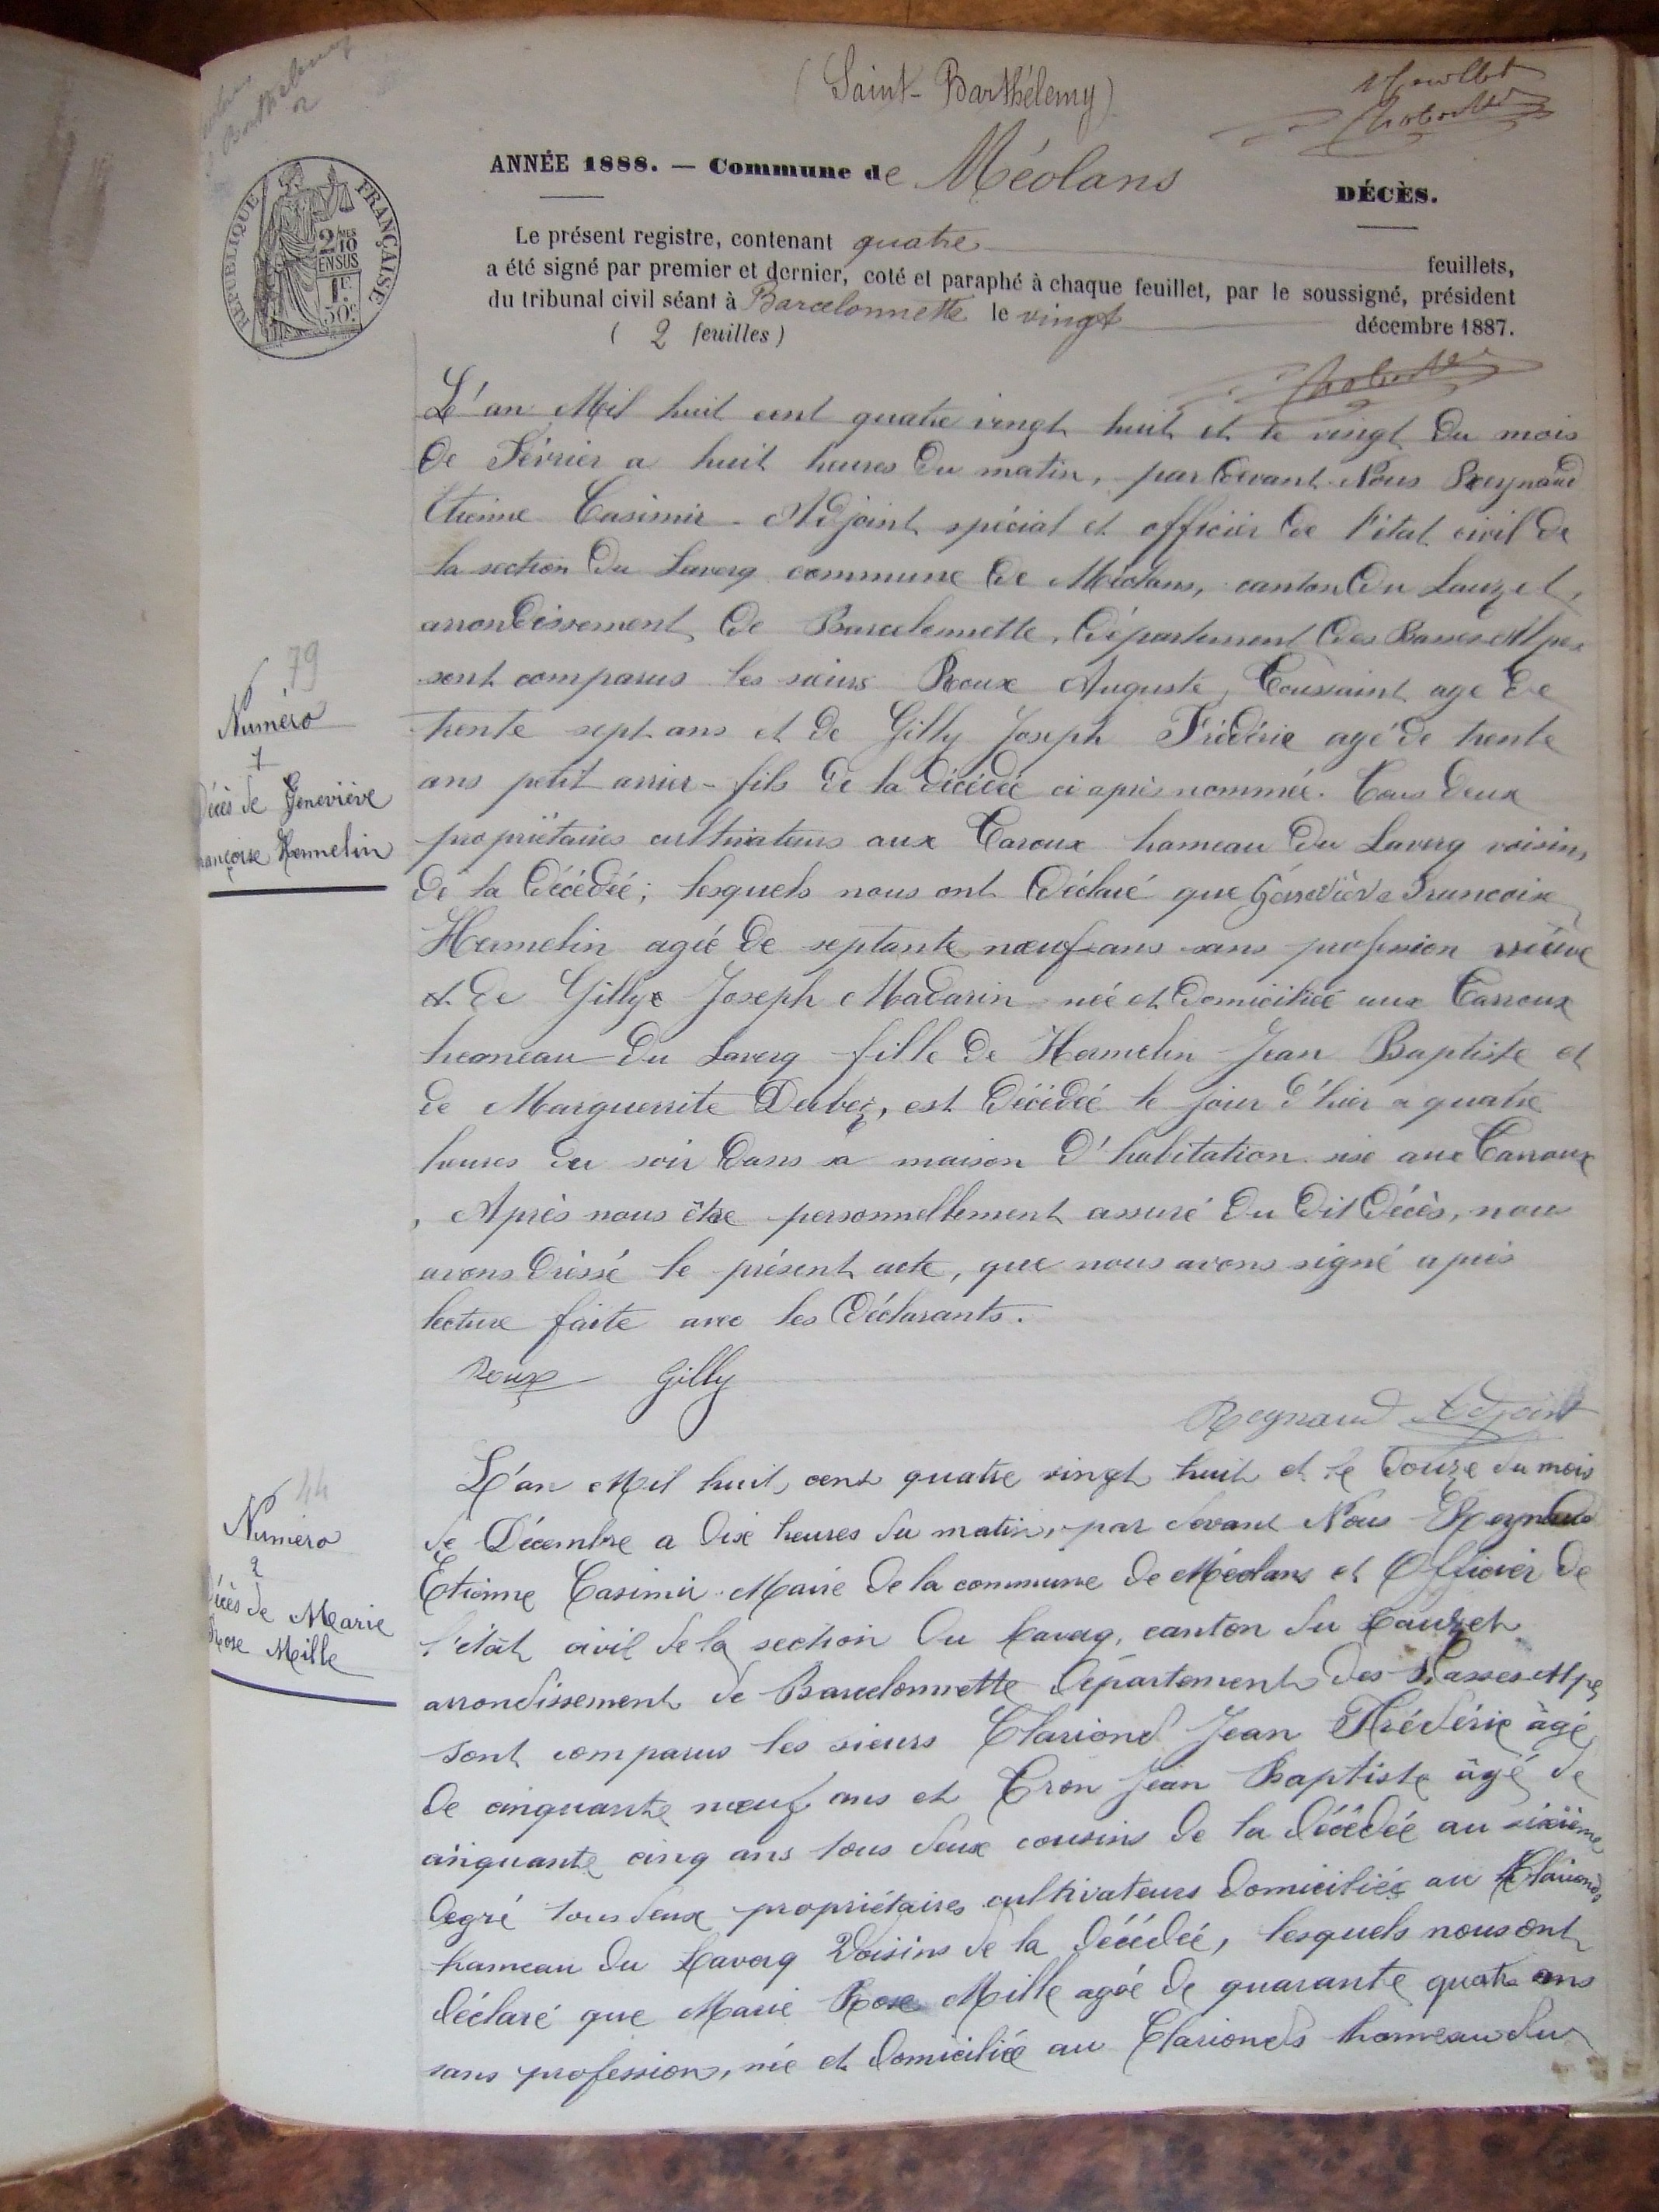 (Saint-Barthélemy)
1er feuillet
ANNÉE 1888. — Commune de Méolans
DÉCÈS.
Le présent registre, contenant quatre feuillets,
a été signé par premier et dernier, coté et paraphé à chaque feuillet, par le soussigné, président
du tribunal civil séant à Barcelonnette le vingt décembre 1887.
( 2 feuilles )
RÉPUBLIQUE FRANÇAISE
2/10
EN SUS
1F
50c
L'an Mil huit cent quatre vingt huit et le vingt du mois
de Février a huit heures du matin, par devant Nous Reynaud
Etienne Casimir - Adjoint spécial et officier de l'état civil de
la section du Laverq commune de Méolans, canton du Lauzet,
arrondissement de Barcelonnette, département des Basses-Alpes
sont comparus les sieurs Roux Auguste, Toussaint age de
trente sept ans et de Gilly Joseph Frédéric agé de trente
ans petit arrier-fils de la décédée ci après nommée. Tous deux
propriétaires cultivateurs aux Taroux hameau du Laverq voisins
de la décédée; lesquels nous ont déclaré que Géneviève Francoise
Hermelin agée de septante nœuf ans sans profession veuve
de Gilly Joseph Madarin née et domiciliée aux Tarroux
hameau du Laverq fille de Hermelin Jean Baptiste et
de Marguerrite Derbez, est décédée le jour d'hier a quatre
heures du soir dans sa maison d'habitation sise aux Tarroux
, Après nous être personnellement assuré du dit décès, nous
avons dréssé le présent acte, que nous avons signé après
lecture faite avec les déclarants.
Roux Gilly
Reynaud Adjoint
79
Numéro
1
Décès de Geneviève
Françoise Hermelin
L'an Mil huit cent quatre vingt huit et le douze du mois
de Décembre a dix heures du matin, par devant Nous Reynaud
Etienne Casimir Maire de la commune de Méolans et Officier de
l'état civil de la section du Laverq, canton du Lauzet
arrondissement de Barcelonnette département des Basses Alpes
sont comparus les sieurs Clariond Jean Frédéric âgé
de cinquante nœuf ans et Tron Jean Baptiste âgé de
cinquante cinq ans tous deux cousins de la décédée au sixième
degré tous deux propriétaires cultivateurs domiciliés au Clarionds
hameau du Laverq voisins de la décédée, lesquels nous ont
déclaré que Marie Rose Mille agée de quarante quatre ans
sans profession, née et domiciliée au Clarionds hameau du
44
Numéro
2
Décès de Marie
Rose Mille